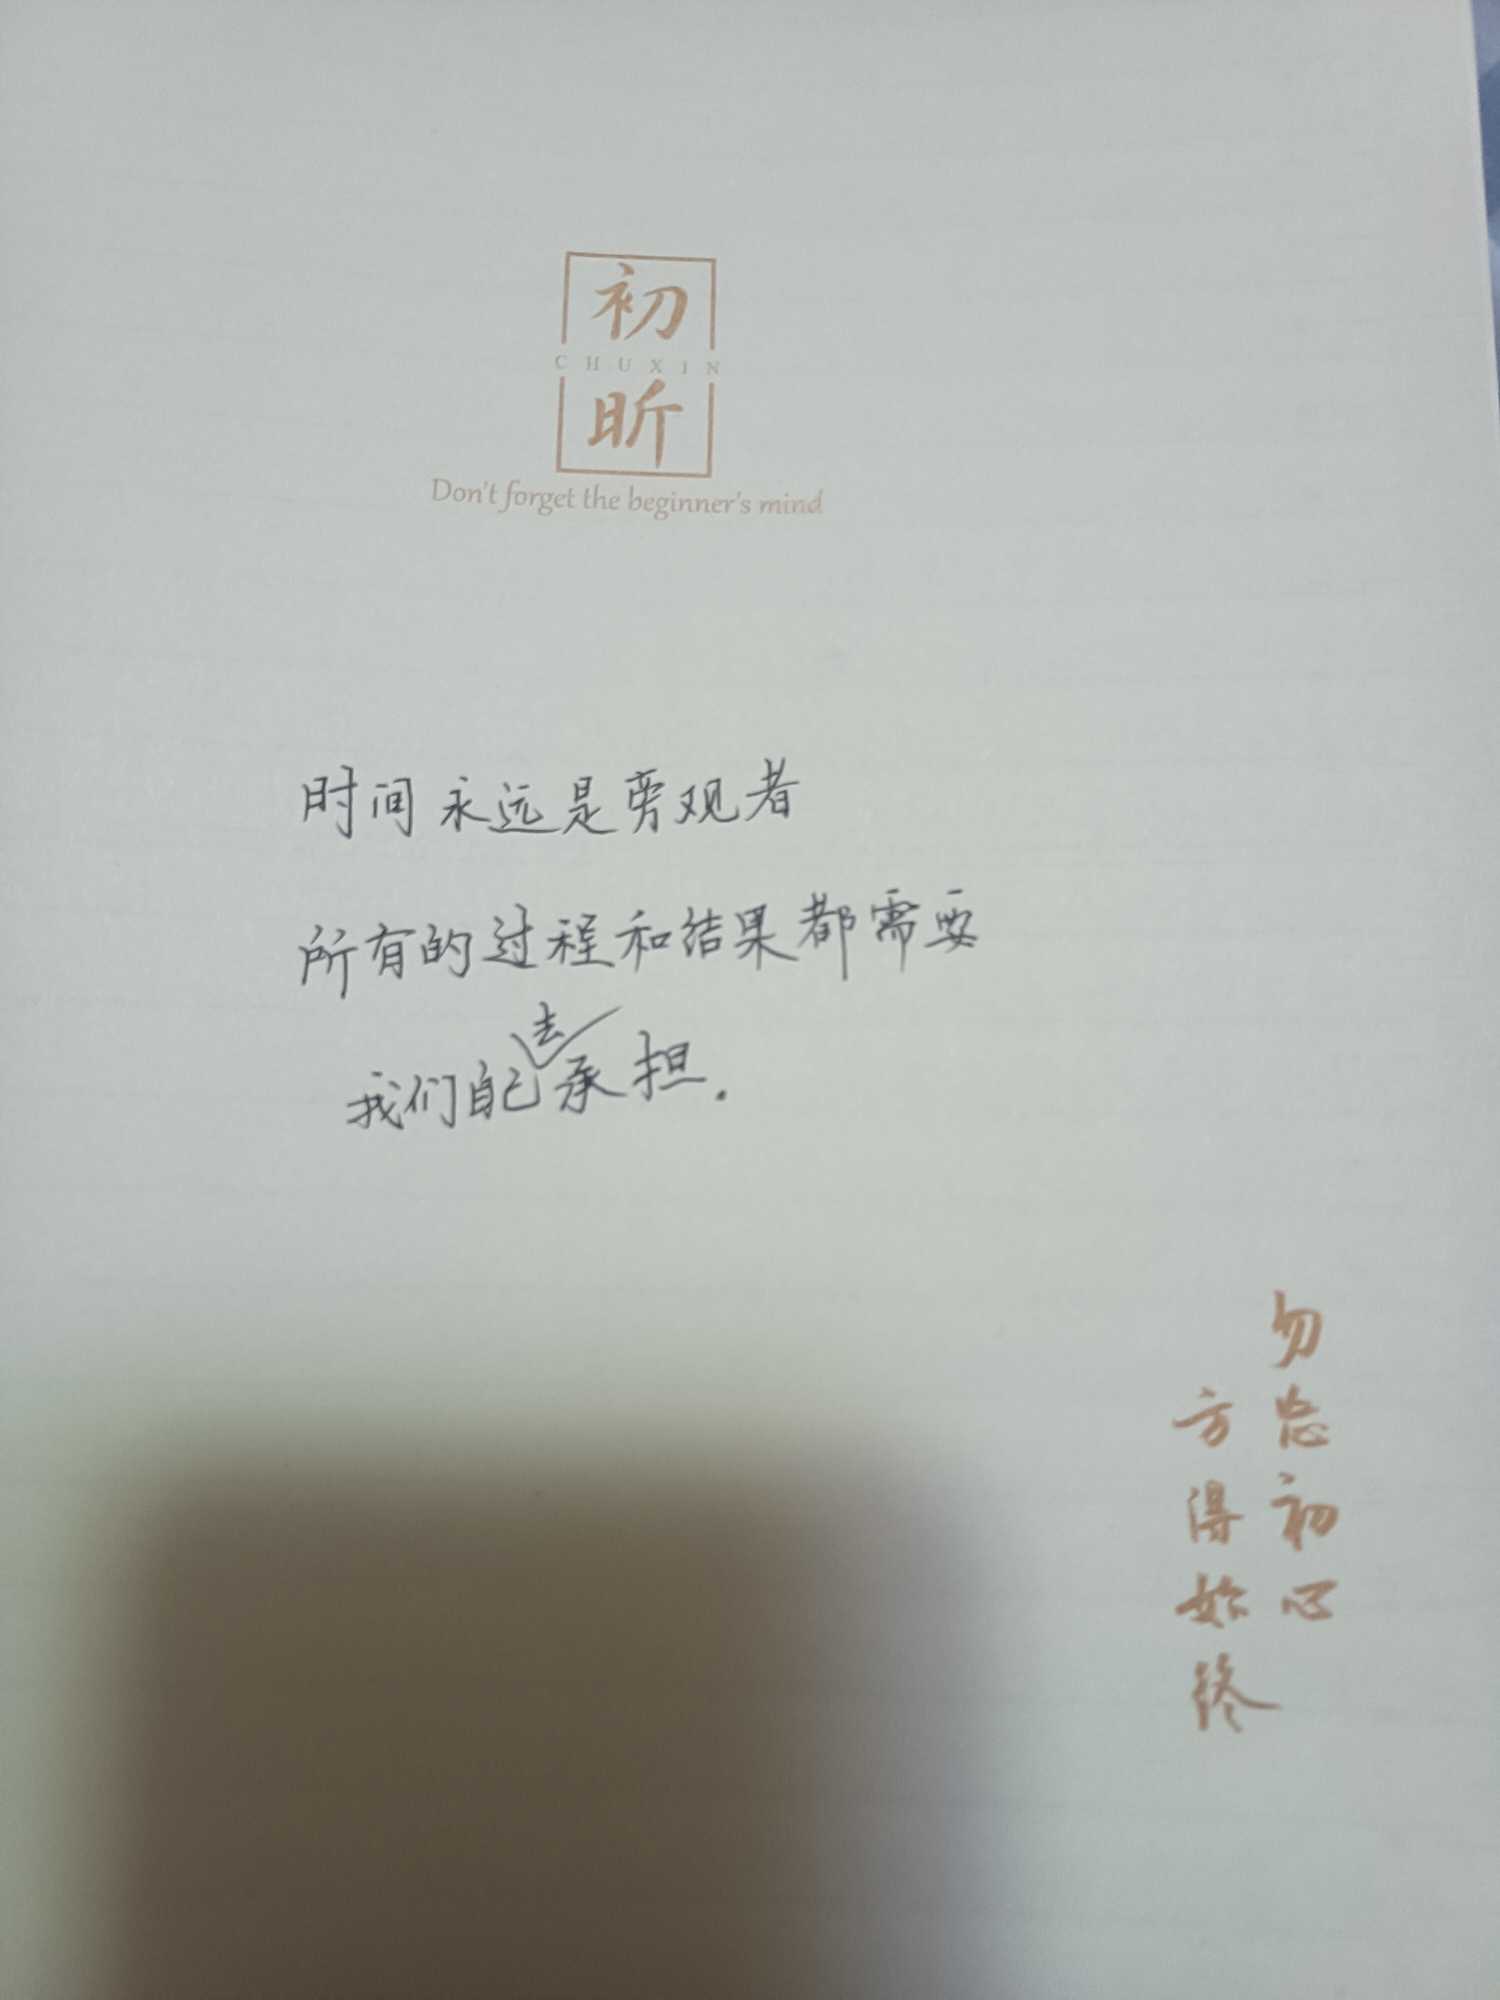 初
CHUXIN
昕
Don't forget the beginner's mind
时间永远是旁观者
所有的过程和结果都需要
我们自己去承担.
勿忘初心
方得始终